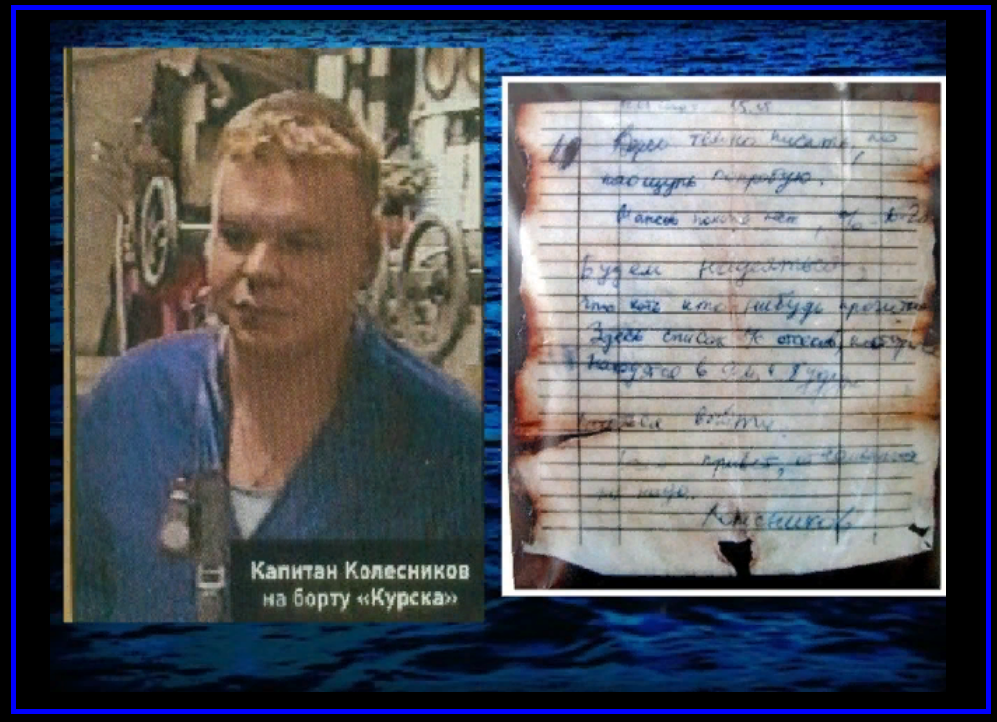 Капитан Колесников
на борту «Курска»
15.15
Здесь темно писать, но
наощупь попробую.
Шансов похоже нет, %
Будем надеяться,
что хоть кто нибудь
Здесь список л/с отсеков,
находятся в 9-м и будут
выйти.
привет, отчаиваться
не надо.
Колесников